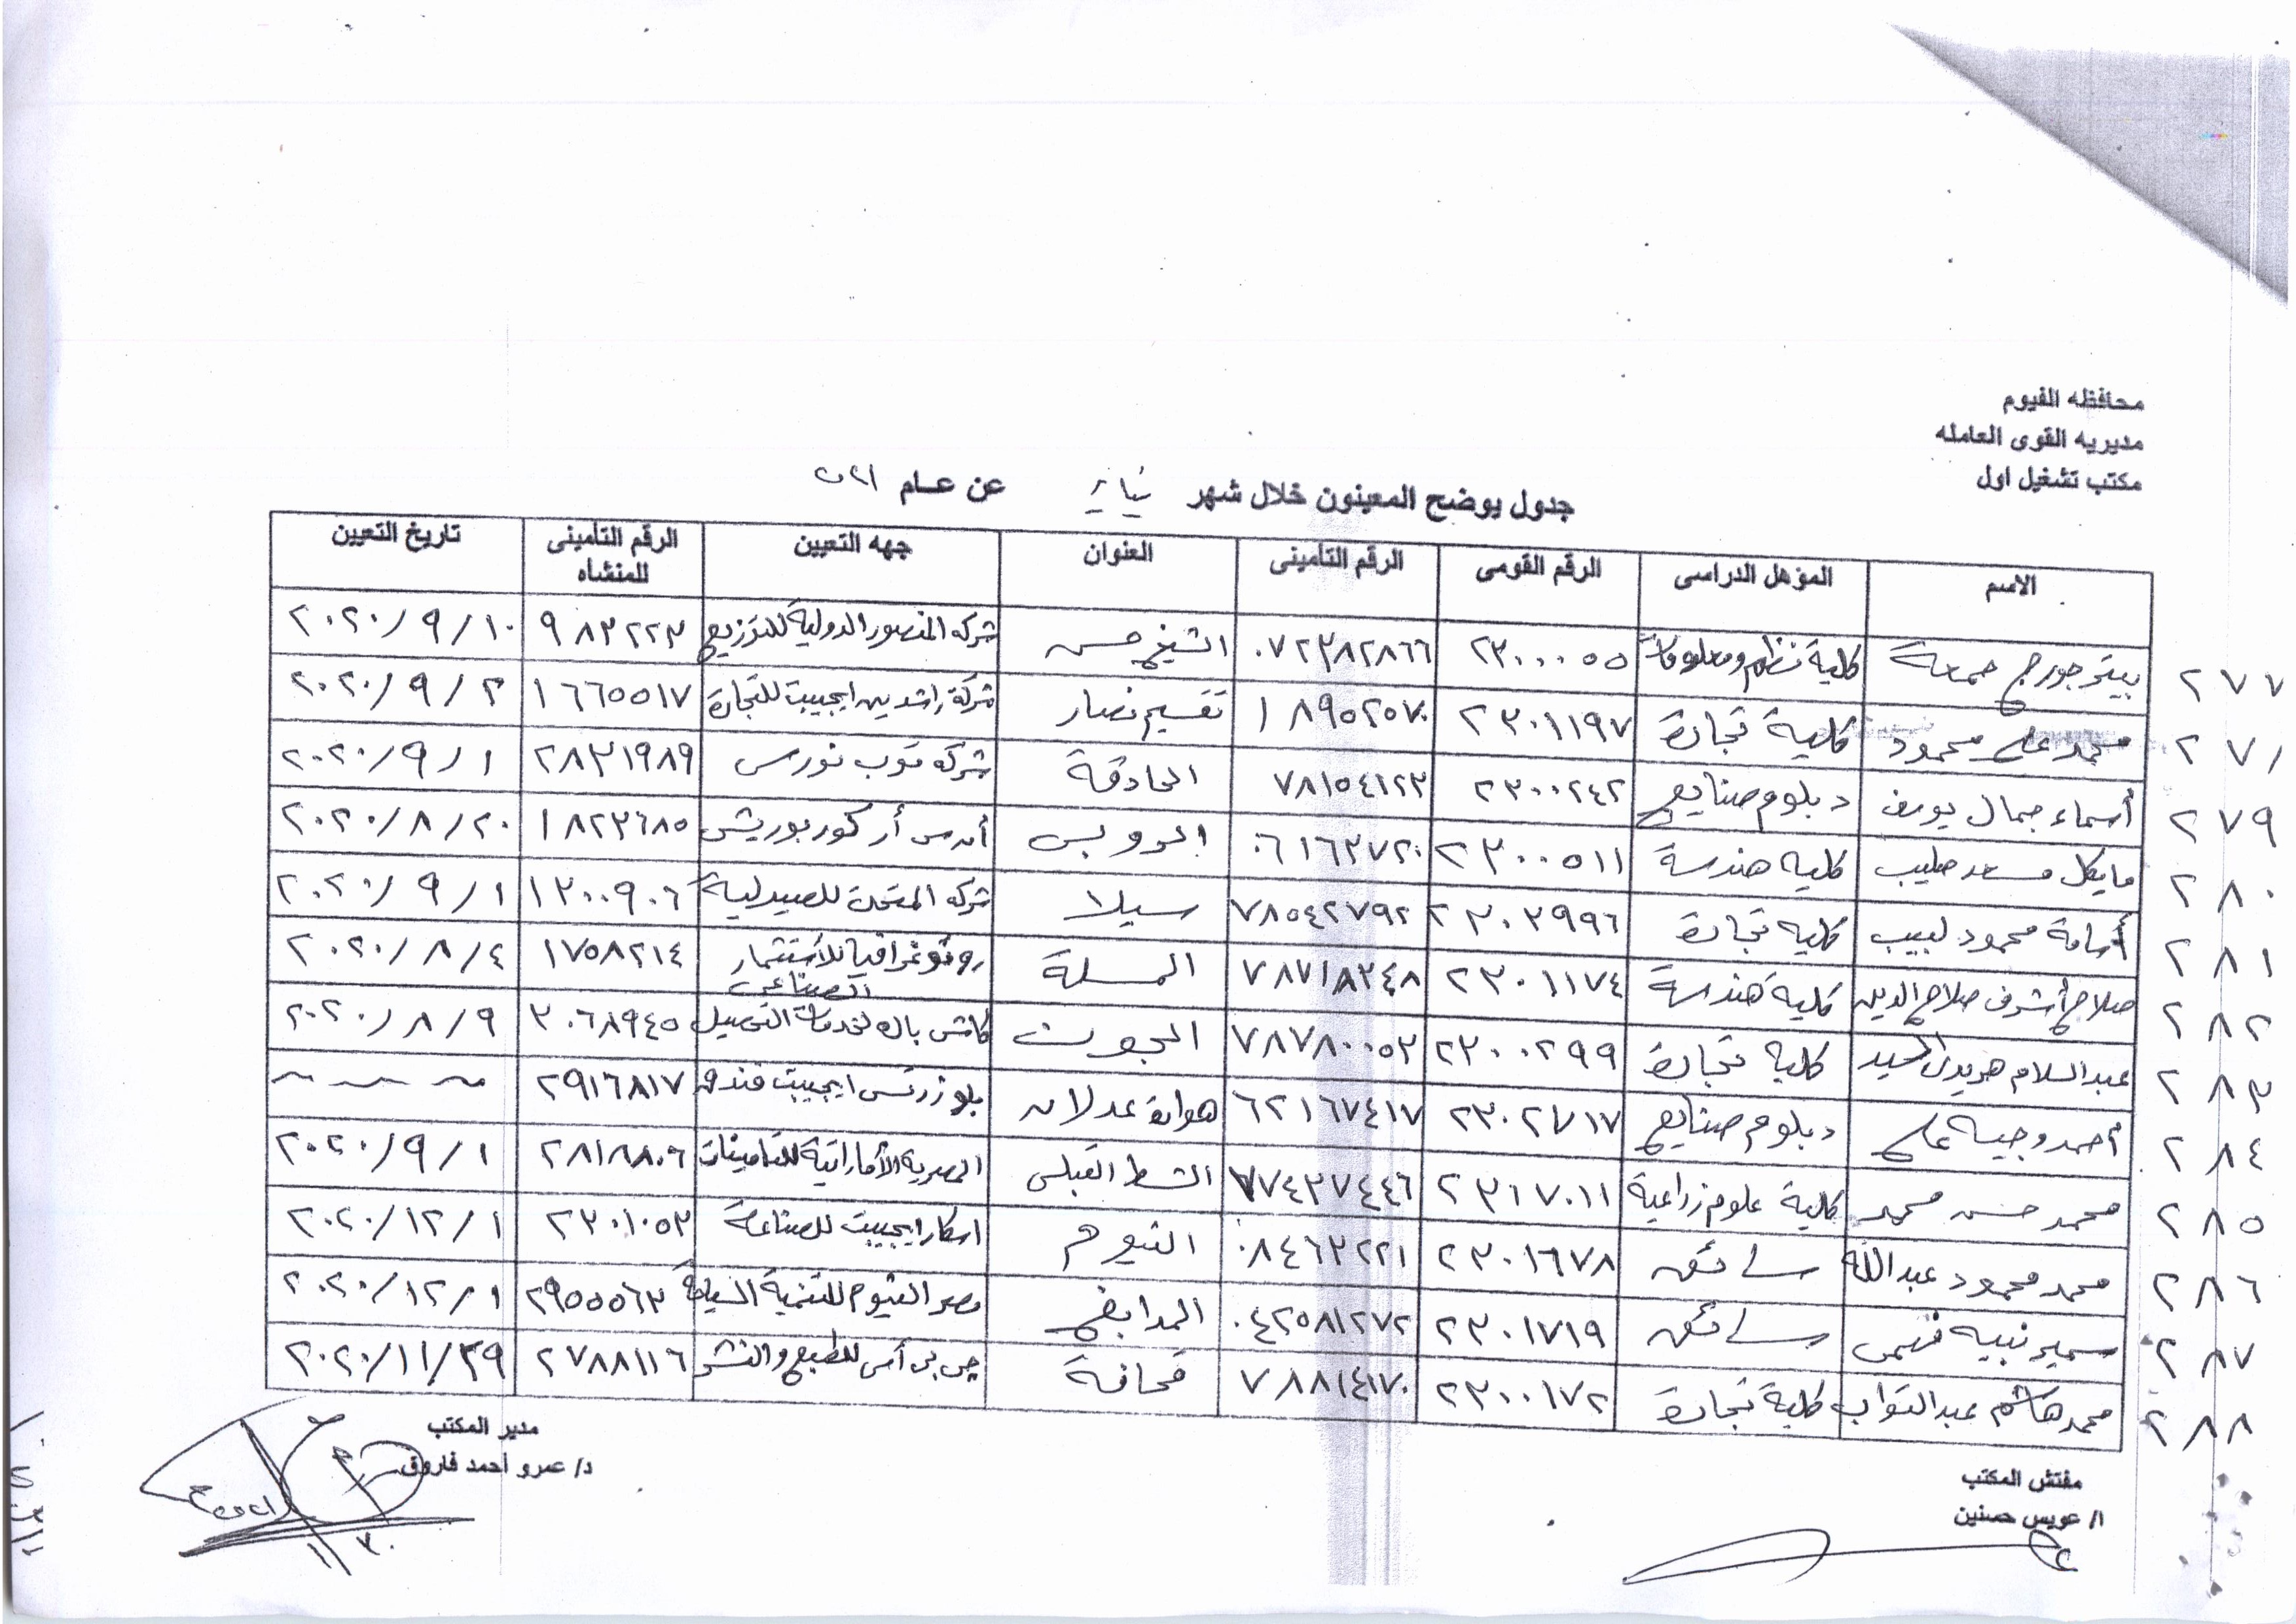 محافظه الفيوم
مديريه القوى العامله
مكتب تشغيل اول
جدول يوضح المعينون خلال شهر يناير عن عام ٢٠٢١
الاسم المؤهل الدراسى الرقم القومى الرقم التأمينى العنوان جهه التعيين الرقم التأمينى للمنشاه تاريخ التعيين
٢٧٧ بيتر جورج جمعة كلية نظم ومعلومات ٢٣٠٠٠٥٥ ٠٧٢٣٨٢٨٦٦ الشيخ حسن شركه المنصور الدولية للتوزيع ٩٨٣٢٢٣ ٢٠٢٠/٩/١٠
٢٧٨ محمد على محمود كلية تجارة ٢٣٠١١٩٧ ١٨٩٥٢٥٧٠ تقسيم نصار شركة راشدين ايجيبت للتجارة ١٦٦٥٥١٧ ٢٠٢٠/٩/٢
٢٧٩ أسماء جمال يوسف دبلوم صنايع ٢٣٠٠٢٤٢ ٧٨١٥٤١٢٣ الحادقة شركه توب نورس ٢٨٣١٩٨٩ ٢٠٢٠/٩/١
٢٨٠ مايكل مسعد حليب كليه هندسة ٢٣٠٠٥١١ ٠٦١٦٣٧٢٠ أر كوربوريشن ١٨٢٣٦٨٥ ٢٠٢٠/٨/٢٠
٢٨١ أسامة محمود لبيب كليه تجارة ٢٣٠٢٩٩٦ ٧٨٥٤٢٧٩٢ سيلا شركه المتحدة للصيدلية ١٣٠٠٩٠٦ ٢٠٢٠/٩/١
٢٨٢ صلاح أشرف صلاح الدين كلية هندسة ٢٣٠١١٧٤ ٧٨٧١٨٣٤٨ المسلة روتوغرافيا للأستثمار الصناعى ١٧٥٨٢١٤ ٢٠٢٠/٨/٤
٢٨٣ عبدالسلام هريدى السيد كلية تجارة ٢٣٠٠٢٩٩ ٧٨٧٨٠٠٥٣ العجوت لخدمات التحصيل ٣٠٦٨٩٤٥ ٢٠٢٠/٨/٩
٢٨٤ أحمد وجيه على دبلوم صنايع ٢٣٠٢٧١٧ ٦٢١٦٧٤١٧ هوارة عدلان بلو زرتس ايجيبت فندق ٢٩١٦٨١٧
٢٨٥ محمد حسن محمد كلية علوم زراعية ٢٣١٧٠١١ ٧٧٤٣٧٤٤٦ الشط القبلى المصرية الأماراتية للتأمينات ٢٨١٨٨٠٦ ٢٠٢٠/٩/١
٢٨٦ محمد محمود عبدالله سائق ٢٣٠١٦٧٨ ٠٨٤٦٣٢٢١ الفيوم اسكار ايجيبت للصناعة ٢٣٠١٠٥٣ ٢٠٢٠/١٢/١
٢٨٧ سمير نبيه فهمى سائق ٢٣٠١٧١٩ ٠٤٢٥٨١٢٧٢ المدابغ مصر الفيوم للتنمية السياحية ٢٩٥٥٥٦٣ ٢٠٢٠/١٢/١
٢٨٨ محمد هاشم عبدالتواب كلية تجارة ٢٣٠٠١٧٢ ٧٨٨١٤١٧٠ قحافة جى بى أس للطبع والنشر ٢٧٨٨١١٦ ٢٠٢٠/١١/٢٩
مفتش المكتب
ا/ عويس حسنين
مدير المكتب
د/ عمرو احمد فاروق